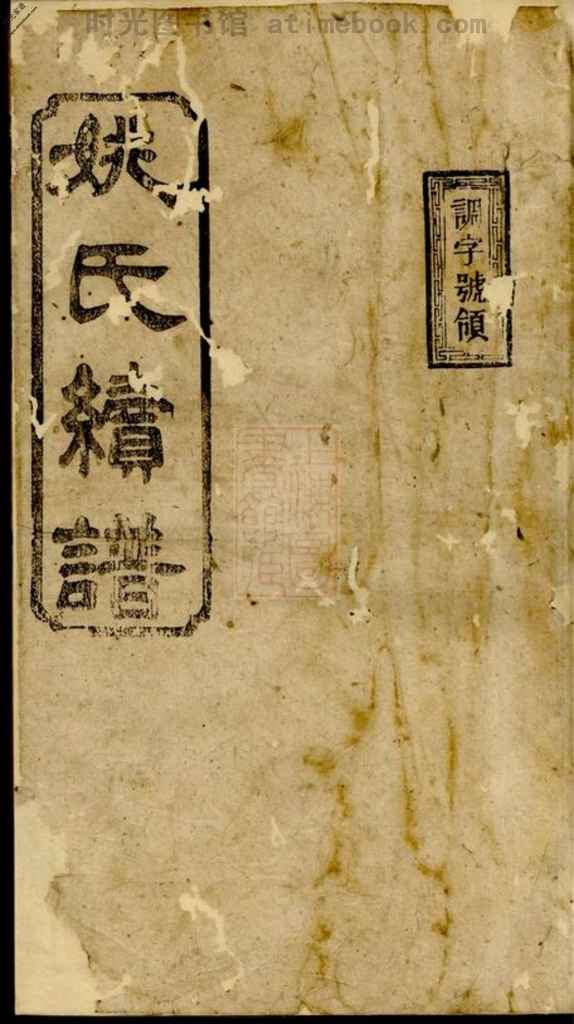 时光图书馆 atimebook.com
調字號領
姚氏續譜